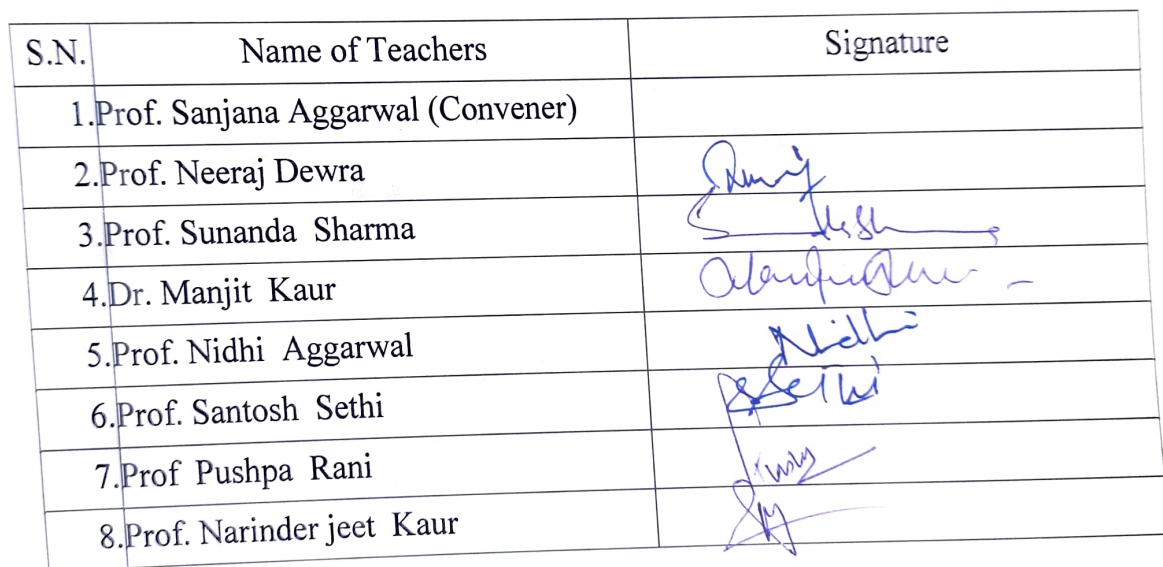 S.N. Name of Teachers Signature
1.Prof. Sanjana Aggarwal (Convener)
2.Prof. Neeraj Dewra
3.Prof. Sunanda Sharma
4.Dr. Manjit Kaur
5.Prof. Nidhi Aggarwal Nidhi
6.Prof. Santosh Sethi Sethi
7.Prof Pushpa Rani
8.Prof. Narinder jeet Kaur